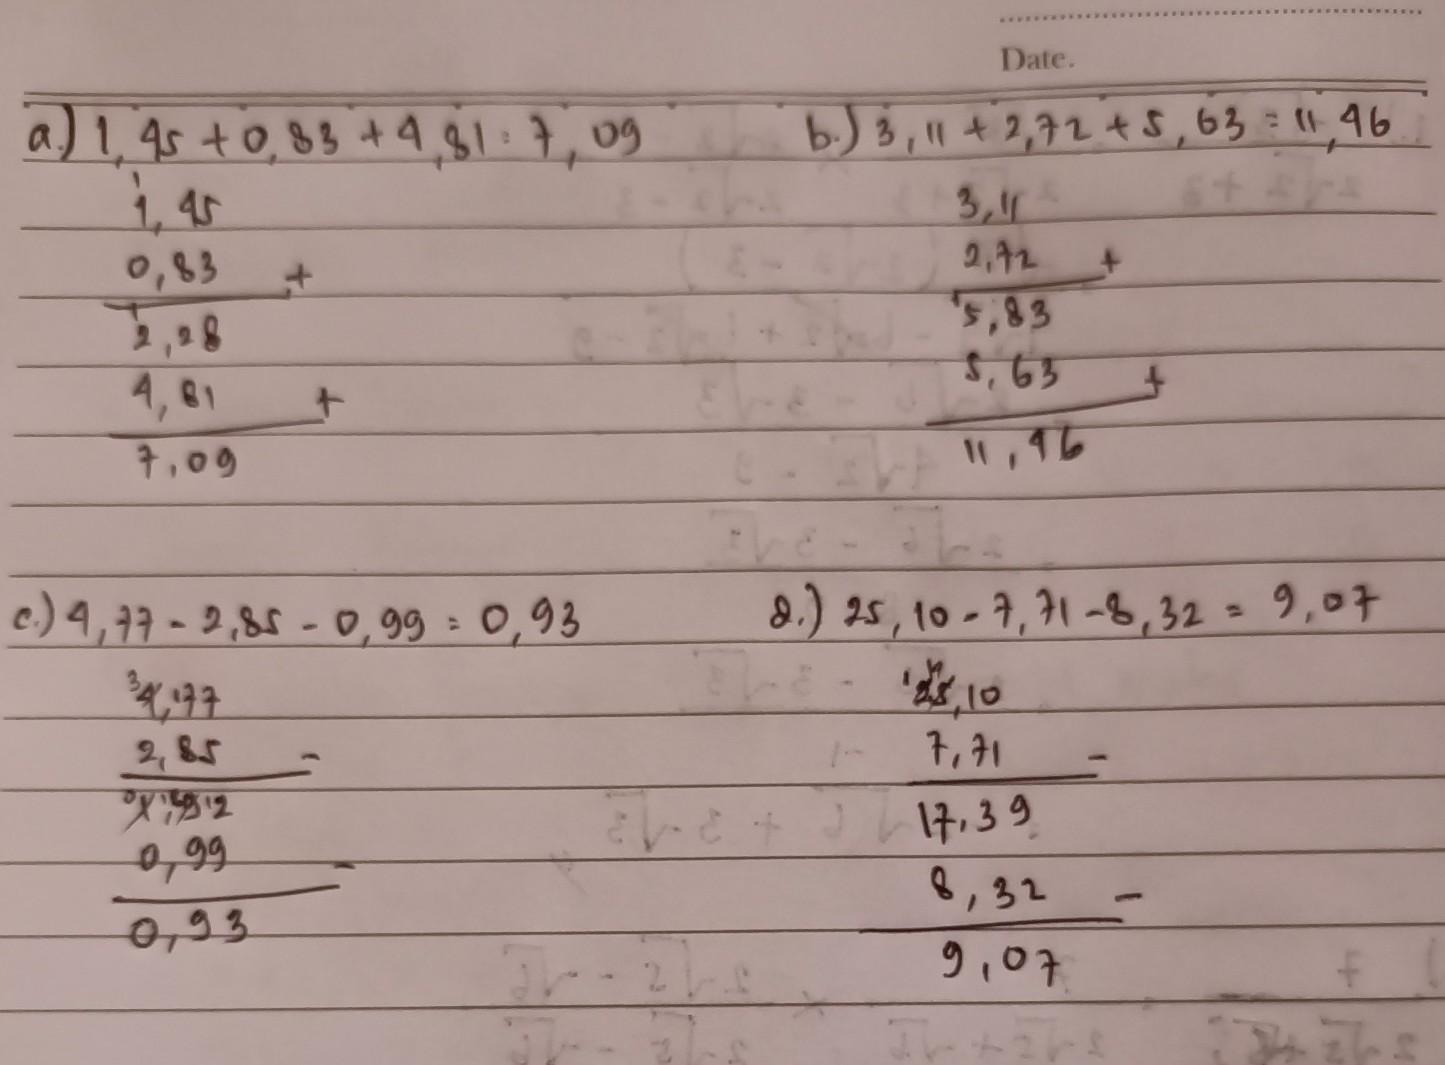 Date.
a.) 1,45 + 0,83 + 4,81 = 7,09
1
1,45
0,83 +
1
2,28
4,81 +
7,09
b.) 3,11 + 2,72 + 5,63 = 11,46
3,11
2,72 +
1
5,83
5,63 +
11,46
c.) 4,77 - 2,85 - 0,99 = 0,93
3 4,177
2,85 -
0,99 -
0,93
d.) 25,10 - 7,71 - 8,32 = 9,07
25,10
7,71 -
17,39
8,32 -
9,07